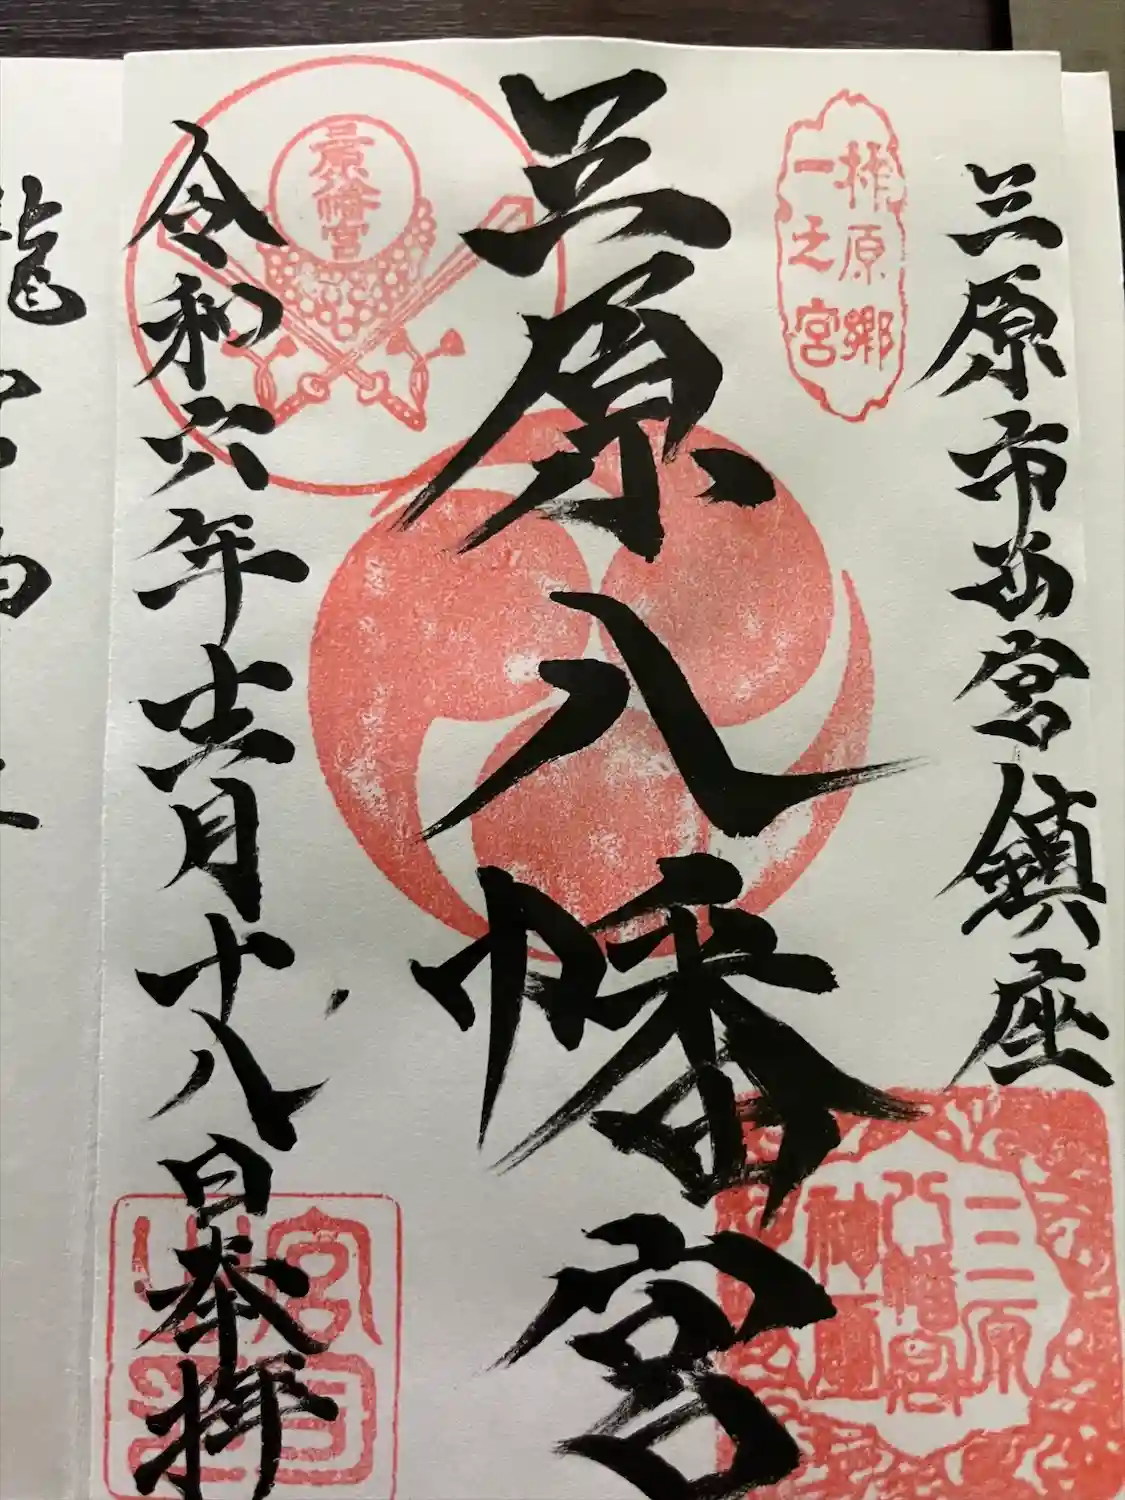 三原市西宮鎮座
柞原郷
一之宮
三原八幡宮
三原八幡宮
三原
八幡宮
神璽
令和六年十一月十八日奉拝
宮司
龍